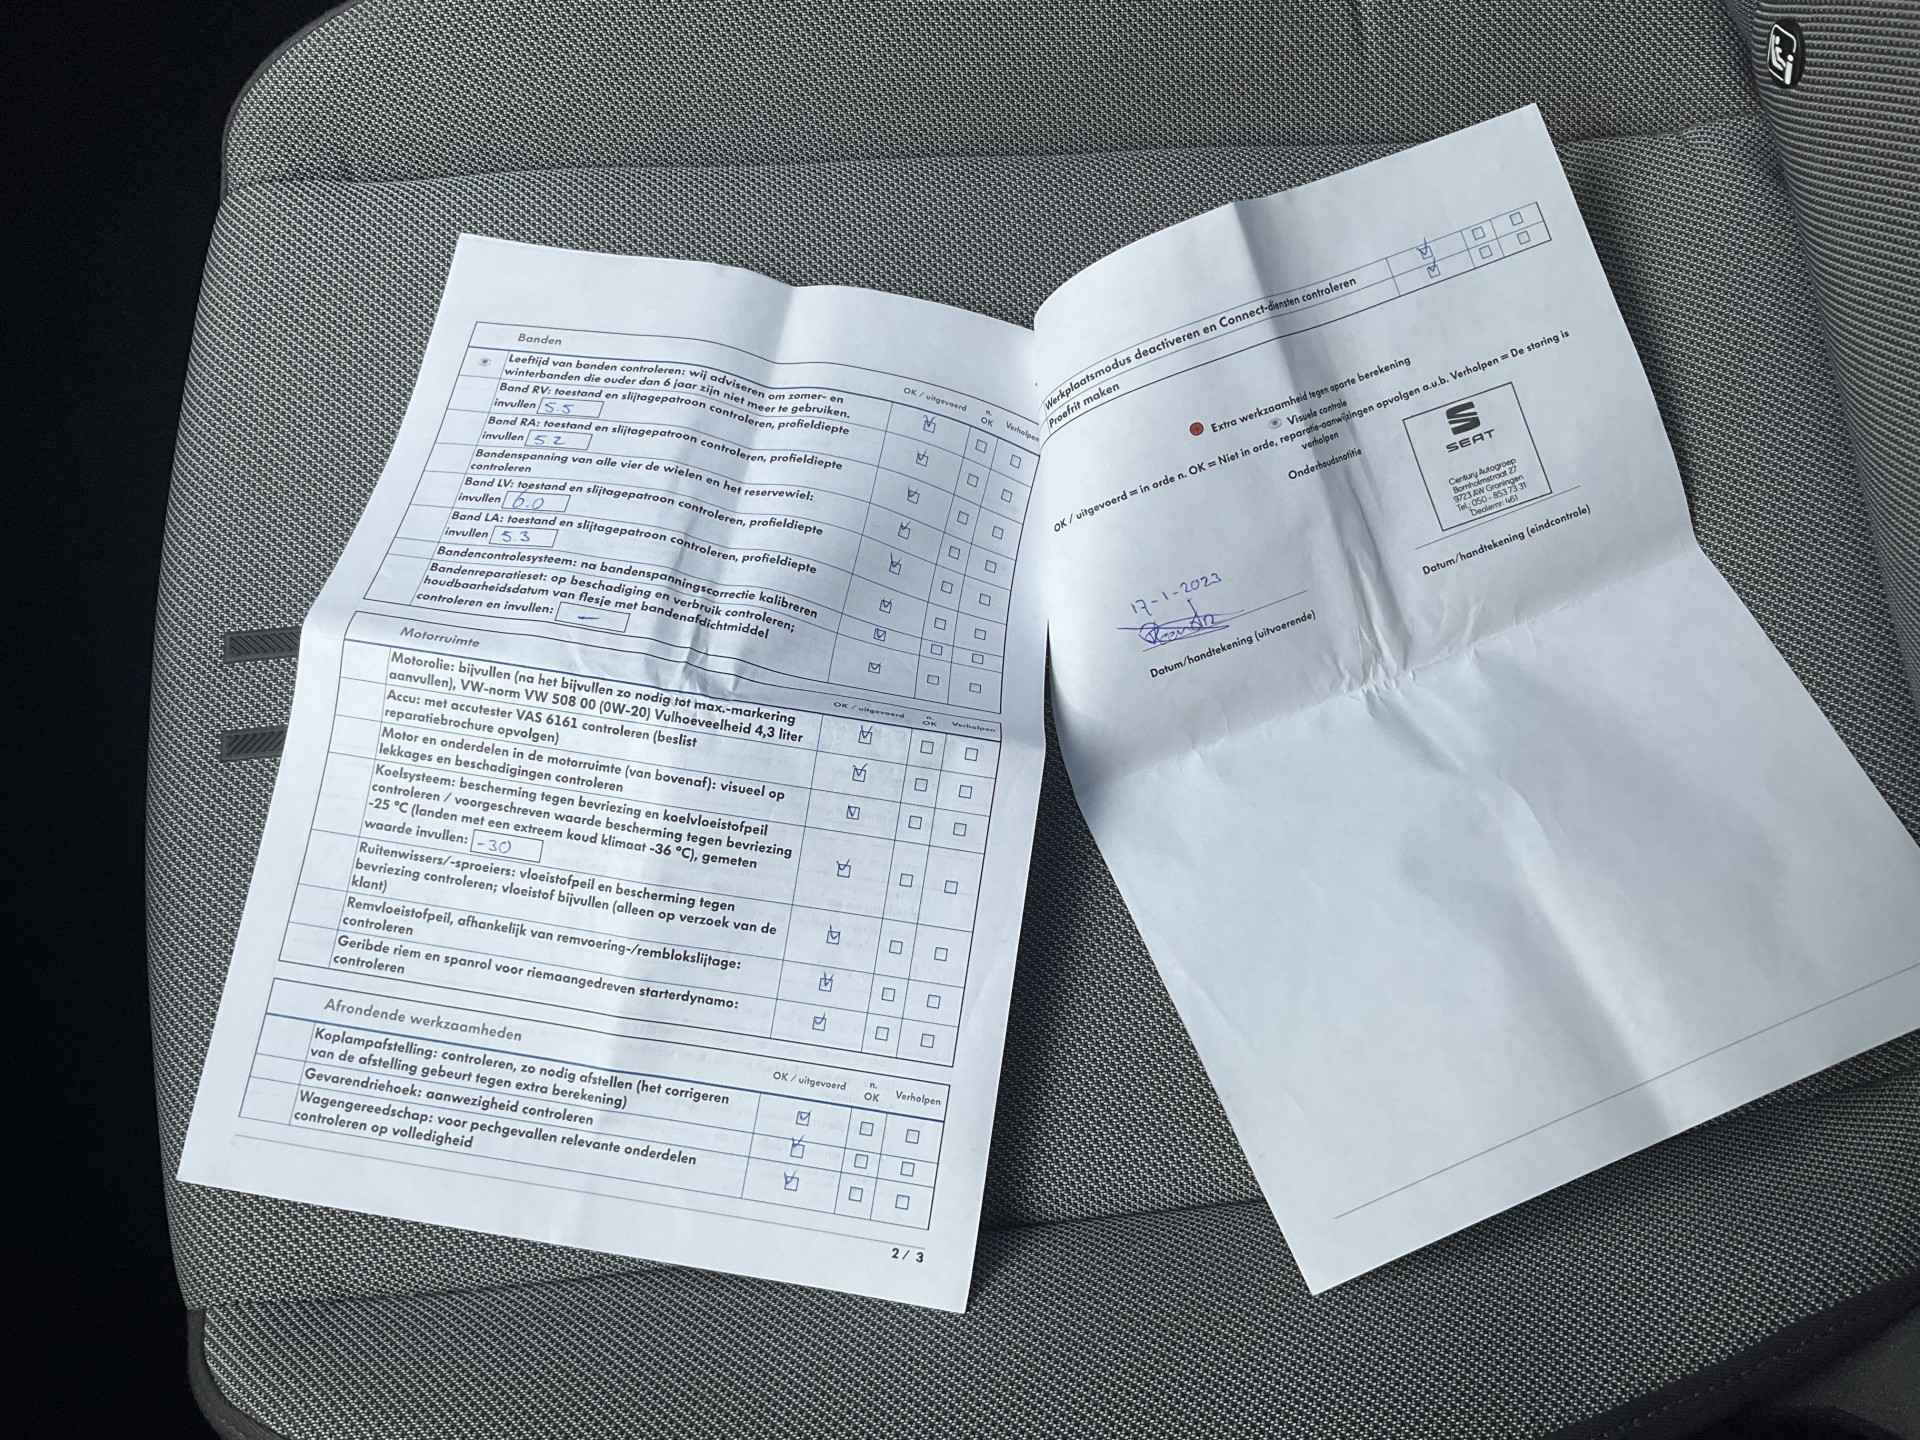 Banden
OK / uitgevoerd
n. OK
Verholpen
Leeftijd van banden controleren: wij adviseren om zomer- en
winterbanden die ouder dan 6 jaar zijn niet meer te gebruiken.
Band RV: toestand en slijtagepatroon controleren, profieldiepte
invullen 5.5
Band RA: toestand en slijtagepatroon controleren, profieldiepte
invullen 5.2
Bandenspanning van alle vier de wielen en het reservewiel:
controleren
Band LV: toestand en slijtagepatroon controleren, profieldiepte
invullen 6.0
Band LA: toestand en slijtagepatroon controleren, profieldiepte
invullen 5.3
Bandencontrolesysteem: na bandenspanningscorrectie kalibreren
Bandenreparatieset: op beschadiging en verbruik controleren;
houdbaarheidsdatum van flesje met bandenafdichtmiddel
controleren en invullen: –
Motorruimte
OK / uitgevoerd
n. OK
Verholpen
Motorolie: bijvullen (na het bijvullen zo nodig tot max.-markering
aanvullen), VW-norm VW 508 00 (0W-20) Vulhoeveelheid 4,3 liter
Accu: met accutester VAS 6161 controleren (beslist
reparatiebrochure opvolgen)
Motor en onderdelen in de motorruimte (van bovenaf): visueel op
lekkages en beschadigingen controleren
Koelsysteem: bescherming tegen bevriezing en koelvloeistofpeil
controleren / voorgeschreven waarde bescherming tegen bevriezing
-25 °C (landen met een extreem koud klimaat -36 °C), gemeten
waarde invullen: -30
Ruitenwissers/-sproeiers: vloeistofpeil en bescherming tegen
bevriezing controleren; vloeistof bijvullen (alleen op verzoek van de
klant)
Remvloeistofpeil, afhankelijk van remvoering-/remblokslijtage:
controleren
Geribde riem en spanrol voor riemaangedreven starterdynamo:
controleren
Afrondende werkzaamheden
OK / uitgevoerd
n. OK
Verholpen
Koplampafstelling: controleren, zo nodig afstellen (het corrigeren
van de afstelling gebeurt tegen extra berekening)
Gevarendriehoek: aanwezigheid controleren
Wagengereedschap: voor pechgevallen relevante onderdelen
controleren op volledigheid
2 / 3
Werkplaatsmodus deactiveren en Connect-diensten controleren
Proefrit maken
Extra werkzaamheid tegen aparte berekening
Visuele controle
OK / uitgevoerd = in orde n. OK = Niet in orde, reparatie-aanwijzingen opvolgen a.u.b. Verholpen = De storing is
verholpen
Onderhoudsnotitie
SEAT
Century Autogroep
Bornholmstraat 27
9723 AW Groningen
Tel.: 050 - 853 73 31
Dealernr: 461
Datum/handtekening (eindcontrole)
17-1-2023
Datum/handtekening (uitvoerende)